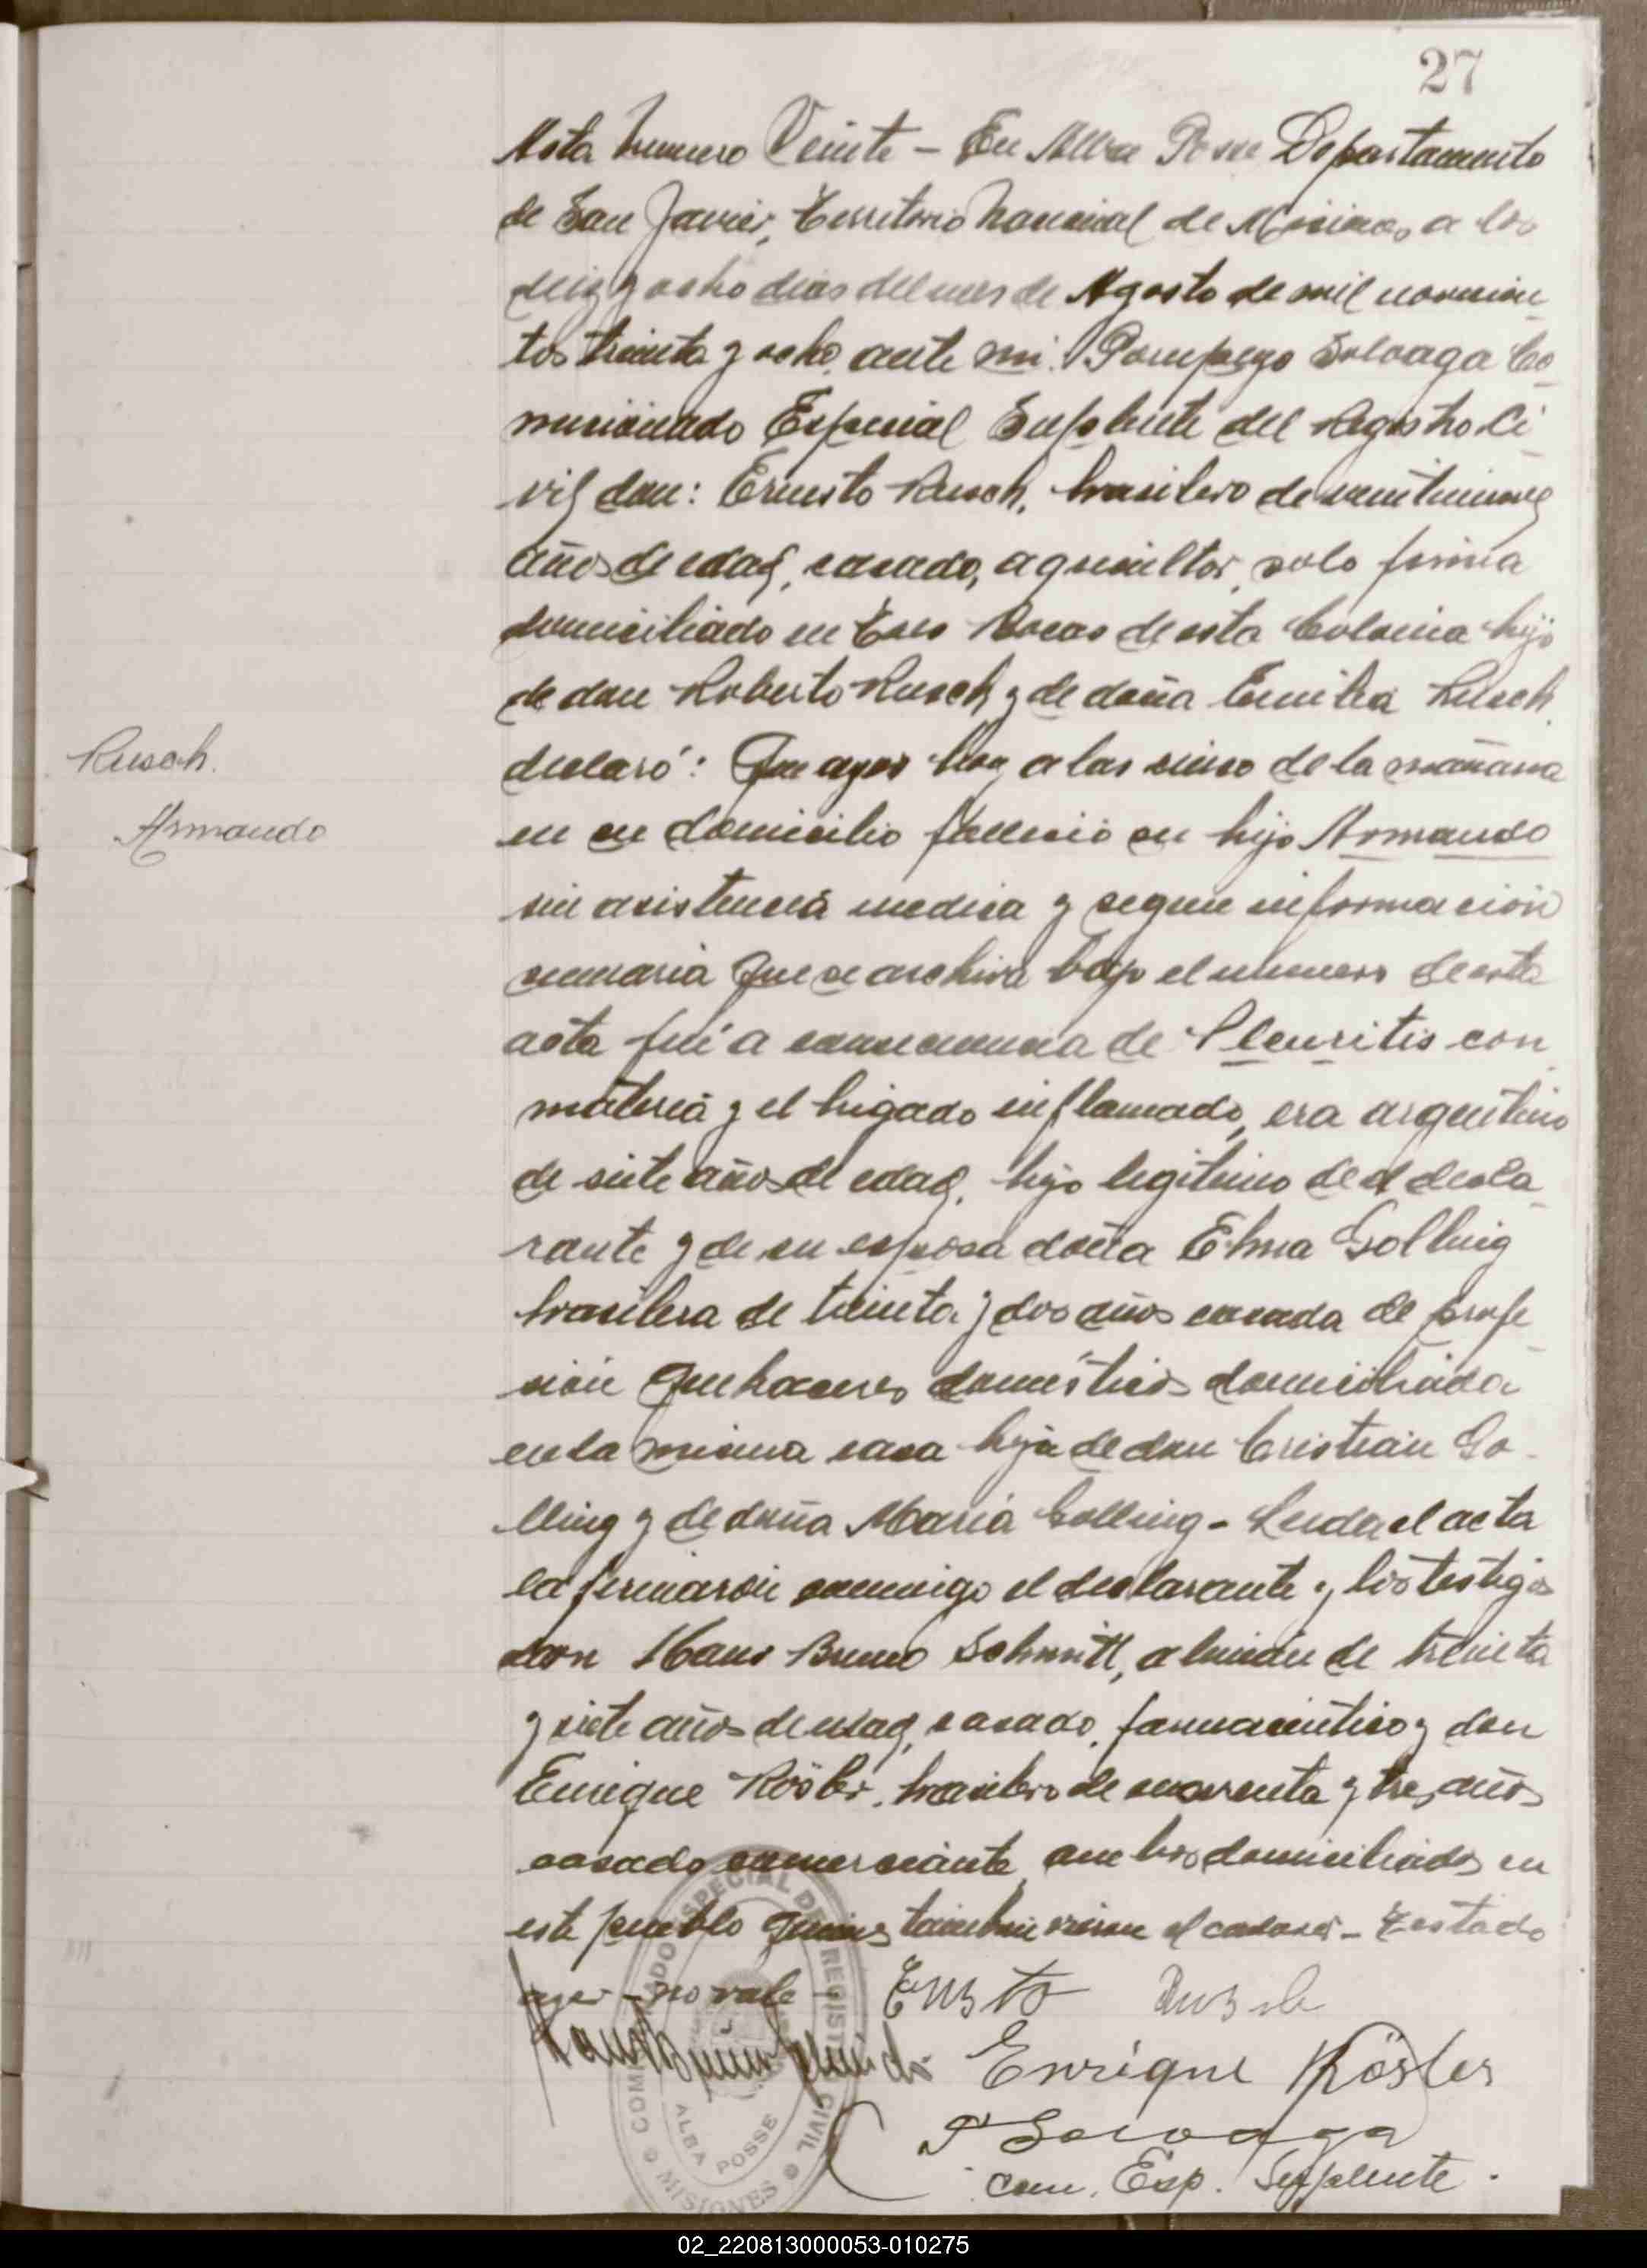 27
Acta número Veinte - En Alba Posse Departamento
de San Javier, Territorio Nacional de Misiones, a los
diez y ocho dias del mes de Agosto de mil novecien-
tos treinta y ocho, ante mi: Pompeyo Solvaga Co-
misionado Especial Suplente del Registro Ci-
vil don: Ernesto Rusch, brasilero de veintinueve
años de edad, casado, agricultor, solo firma
domiciliado en Tres Bocas de esta Colonia hijo
de don Roberto Rusch y de doña Emilia Rusch
declaró: Que ayer hoy a las cinco de la mañana
Rusch.
Armando
en su domicilio falleció su hijo Armando
sin asistencia medica y segun información
sumaria que se archiva bajo el número de esta
acta fué a consecuencia de Pleuritis con
materia y el higado inflamado, era argentino
de siete años de edad, hijo legitimo de el decla-
rante y de su esposa doña Elma Golling
brasilera de treinta y dos años casada de profe-
sión quehaceres domésticos domiciliada
en la misma casa hija de don Cristian Go-
lling y de doña Maria Golling - Leida el acta
la firmaron conmigo el declarante y los testigos
don Hans Bruno Schmitt, alemán de treinta
y siete años de edad, casado, farmacéutico y don
Enrique Rösler, brasilero de cuarenta y tres años
casado comerciante, ambos domiciliados en
este pueblo quienes tambien vieron el cadaver - Testado
ayer - no vale -
Ernsto Rusch
Hans Bruno Schmidt
Enrique Rösler
P Solvaga
Com. Esp. Suplente.
COMISIONADO ESPECIAL DEL REGISTRO CIVIL
ALBA POSSE
MISIONES
02_220813000053-010275